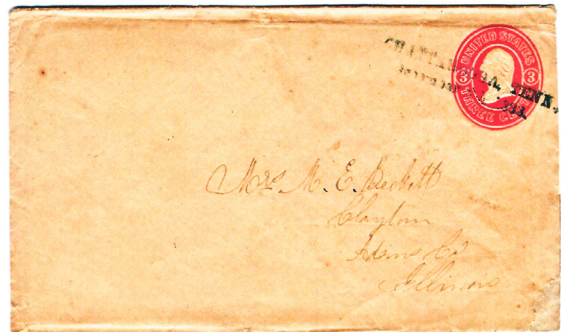 CHATTANOOGA, TENN.
UNITED STATES
3 3
THREE CENTS
Mrs M. E. Beckett
Clayton
Adams Co
Illinois